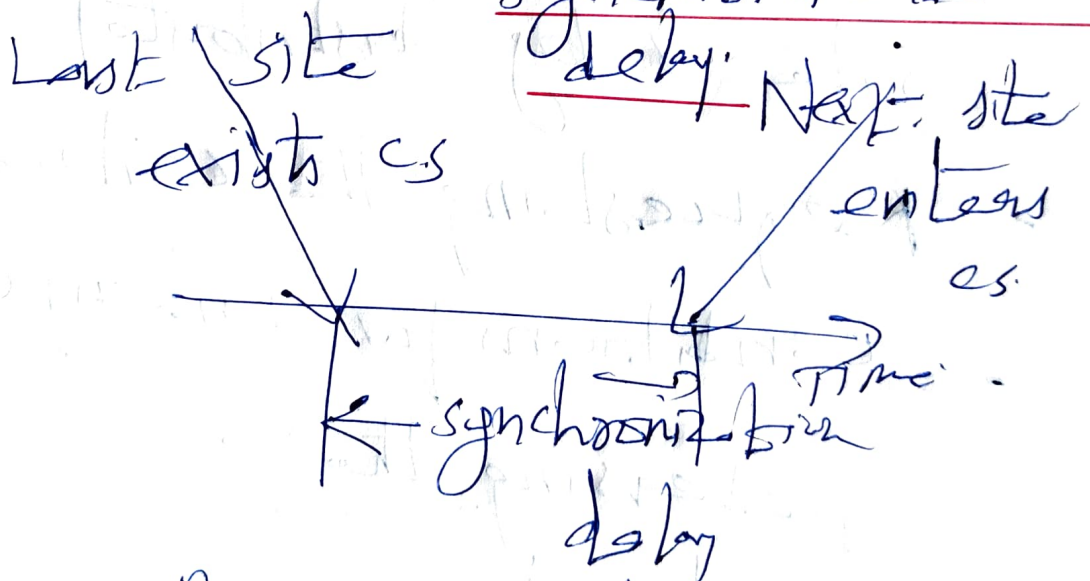 delay.
Last site
exists cs
Next site
enters
cs.
Time.
synchronization
delay